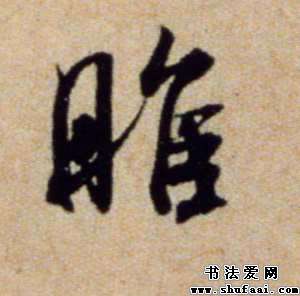 睢
书法爱网
www.shufaai.com